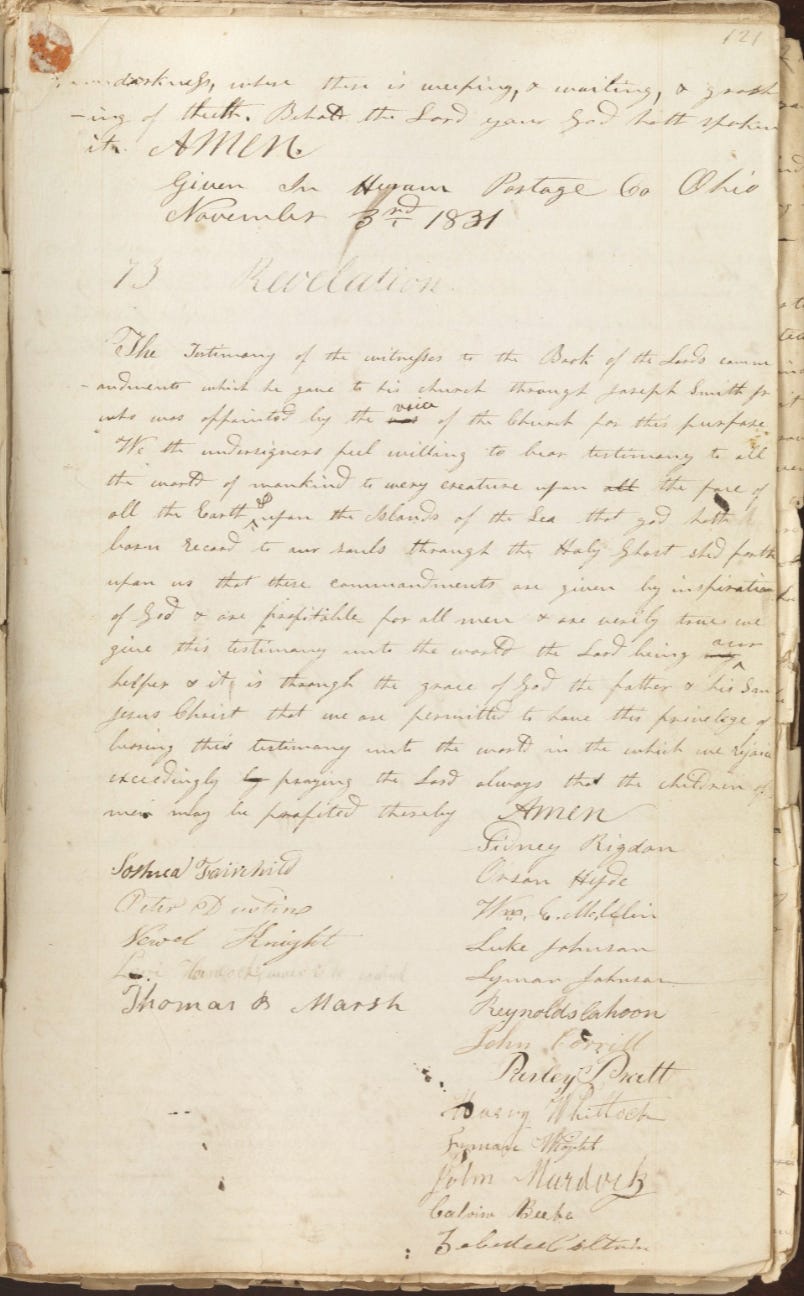 121
darkness, where there is weeping, & wailing, & gnash
-ing of theeth. Behold the Lord your God hath spoken
it. AMEN
Given In Hyram Portage Co Ohio
November 3rd 1831
73 Revelation
The Testimony of the witnesses to the Book of the Lords comm
-andments which he gave to his church through Joseph Smith Jr
who was appointed by the voice of the Church for this purpose
We the undersigners feel willing to bear testimony to all
the world of mankind to every creature upon all the face of
all the Earth & upon the Islands of the Sea that god hath
born record to our souls through the Holy Ghost shed forth
upon us that these commandments are given by inspiration
of God & are profitable for all men & are verily true we
give this testimony unto the world the Lord being our
helper & it is through the grace of God the father & his Son
Jesus Christ that we are permitted to have this privelege of
bearing this testimony unto the world in the which we rejoice
exceedingly by praying the Lord always that the children of
men may be profited thereby AMEN
Sidney Rigdon
Orson Hyde
Wm. E. Mclelin
Luke Johnson
Lyman Johnson
Reynolds Cahoon
John Corrill
Parley Pratt
Harvey Whitlock
Lyman Wight
John Murdock
Calvin Beebe
Zebedee Coltrin
Joshua Fairchild
Peter Dustin
Newel Knight
Levi Hancock
Thomas B Marsh